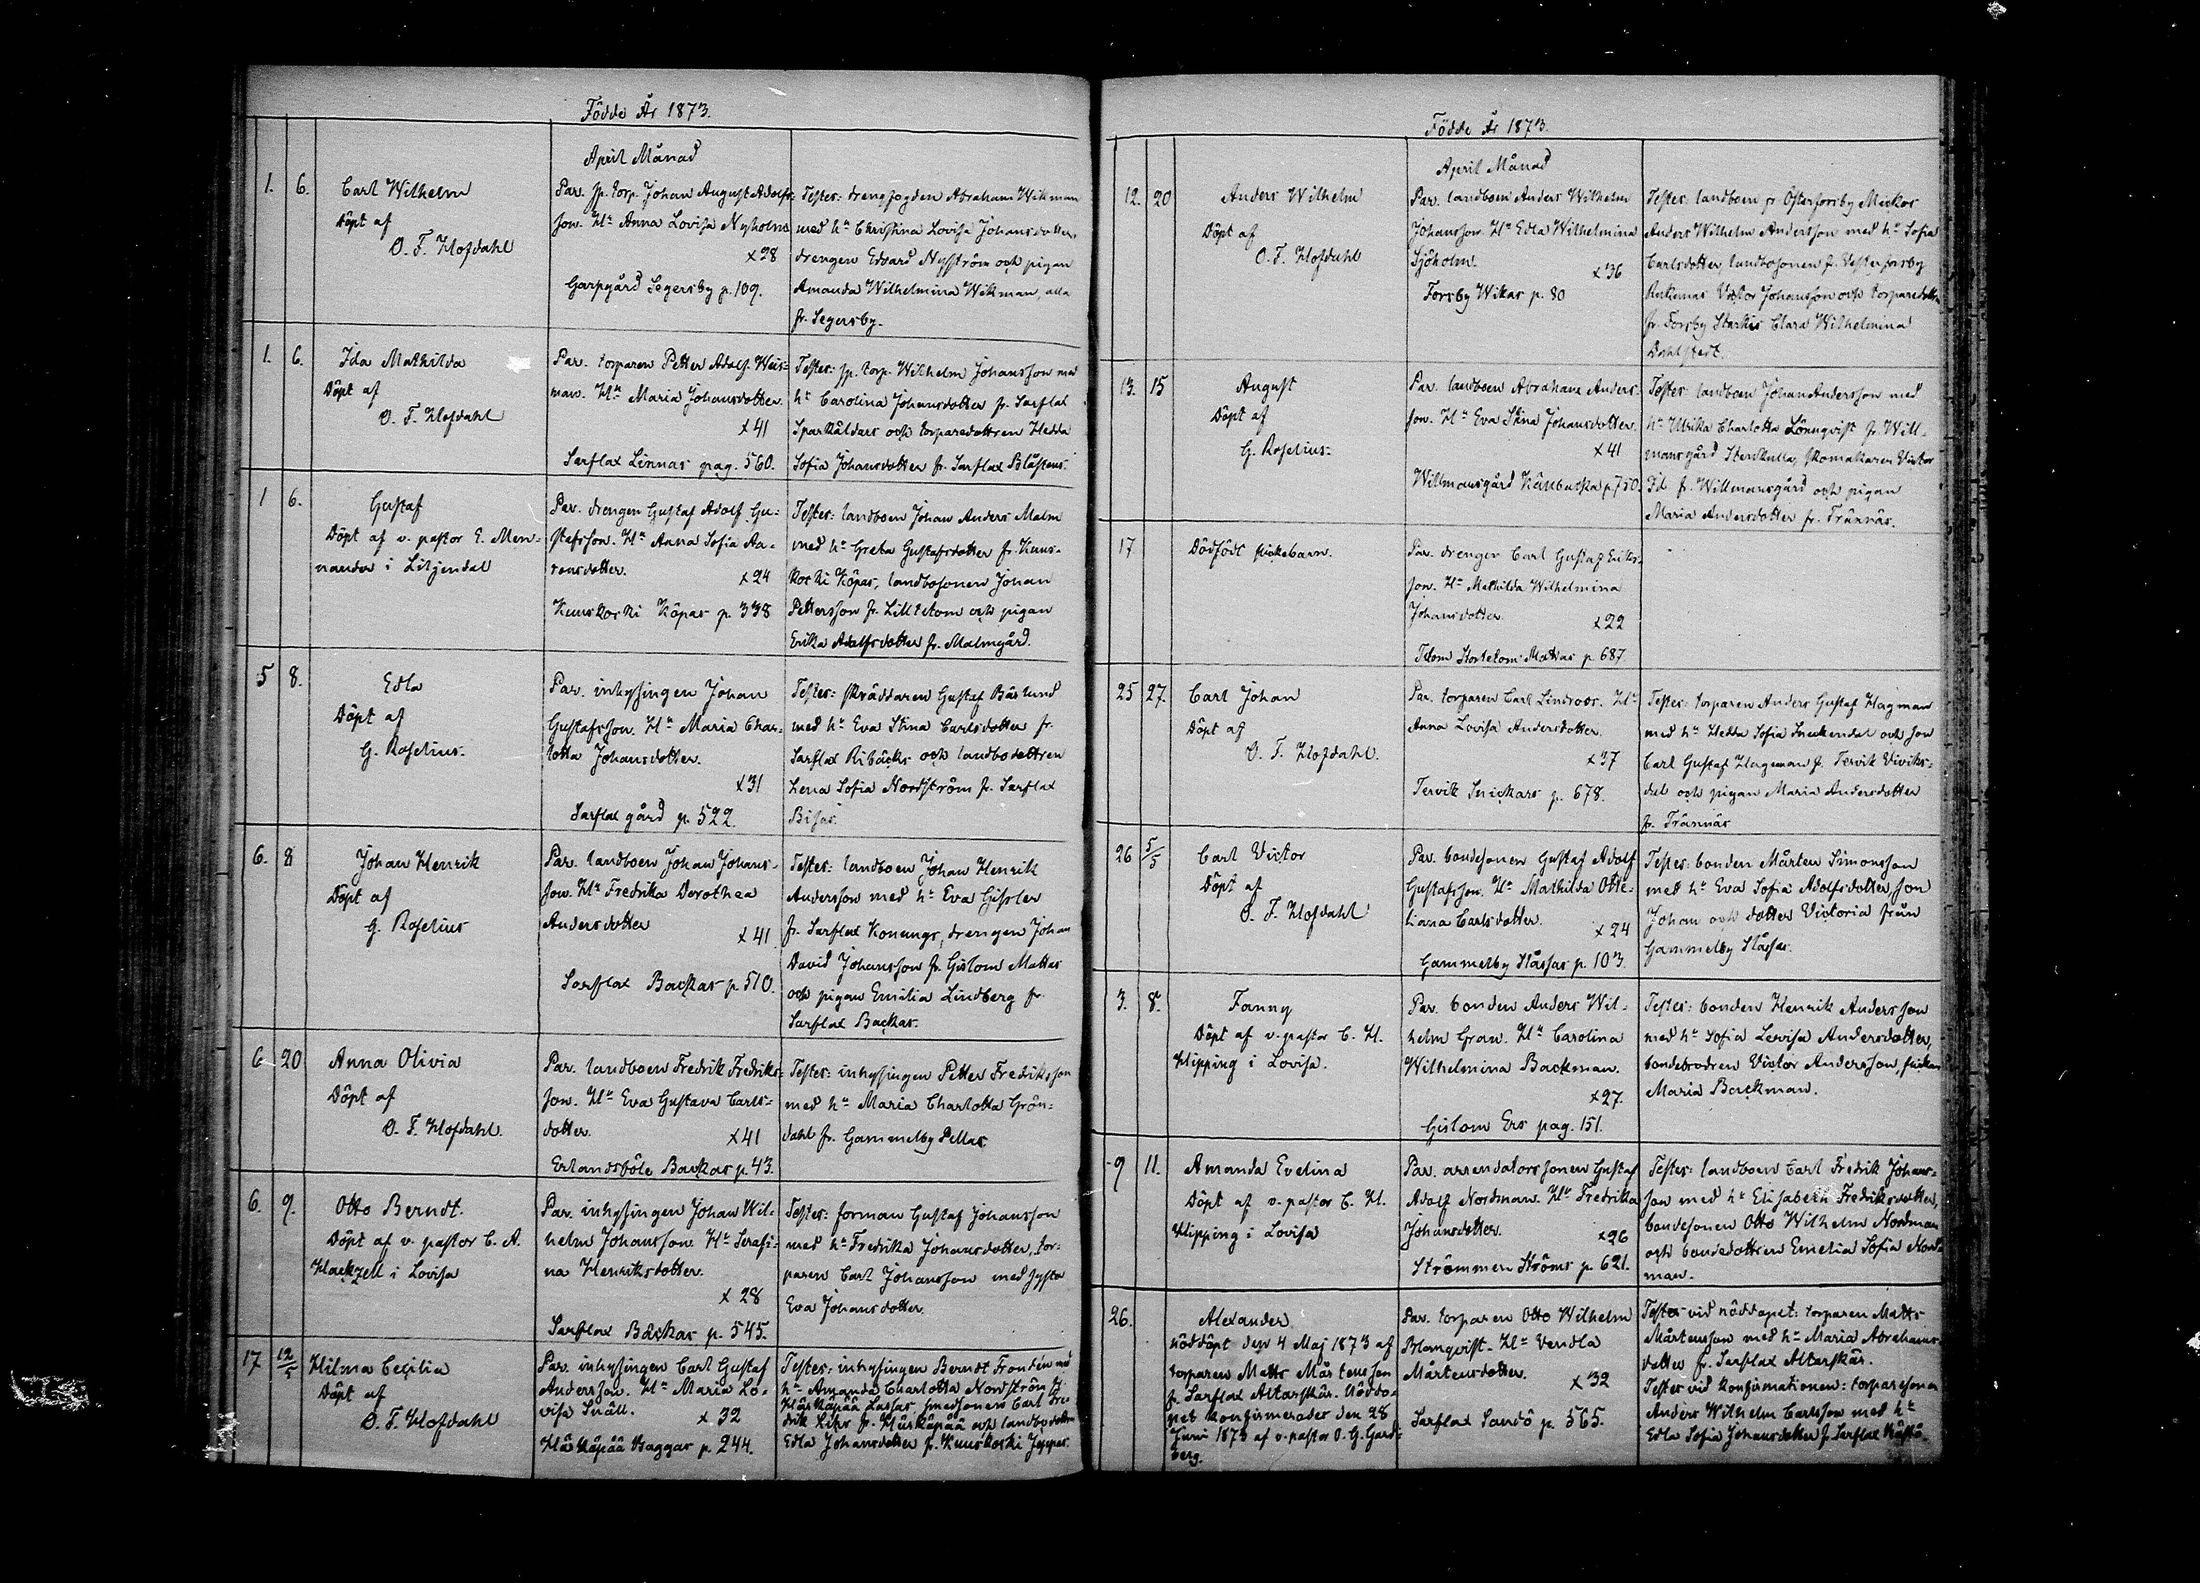 Födde År 1873.
April Månad
1. 6. Carl Wilhelm
Döpt af
O. F. Hofdahl
Par. sp. torp. Johan August Adolfs-
son. Hu Anna Lovisa Nyholm
x28
Garpgård Segersby p. 109.
Testes: drengfogden Abraham Wikman
med hu Christina Lovisa Johansdotter,
drengen Edvard Nyström och pigan
Amanda Wilhelmina Wikman, alla
fr. Segersby.
1. 6. Ida Mathilda
Döpt af
O. F. Hofdahl
Par. torparen Petter Adolf Weis-
man. Hu Maria Johansdotter.
x41
Sarflax Linnas pag. 560.
Testes: sp. torp. Wilhelm Johansson med
hu Carolina Johansdotter fr. Sarflax
Sparkåldars och torparedottren Hedda
Sofia Johansdotter fr. Sarflax Blåstens.
1 6. Gustaf
Döpt af v. pastor E. Men-
nander i Liljendal
Par. drengen Gustaf Adolf Gu-
stafsson. Hu Anna Sofia Aa-
ronsdotter.
x24
Kuuskoski Köpas p. 338
Testes: landboen Johan Anders Malm
med hu Greta Gustafsdotter fr. Kuus-
koski Köpas, landbosonen Johan
Pettersson fr. Lilltetom och pigan
Erika Adolfsdotter fr. Malmgård.
5 8. Edla
Döpt af
G. Roselius.
Par. inhysingen Johan
Gustafsson. Hu Maria Char-
lotta Johansdotter.
x31
Sarflax gård p. 522.
Testes: skräddaren Gustaf Bäslund
med hu Eva Stina Carlsdotter fr.
Sarflax Ribäcks och landbodottren
Lena Sofia Nordström fr. Sarflax
Bisas.
6. 8 Johan Henrik
Döpt af
G. Roselius
Par. landboen Johan Johans-
son. Hu Fredrika Dorothea
Andersdotter
x41
Sarflax Backas p. 510.
Testes: landboen Johan Henrik
Andersson med hu Eva Gissler
fr. Sarflax Konungs, drengen Johan
David Johansson fr. Gislom Mattas
och pigan Emilia Lindberg fr.
Sarflax Backas.
6 20 Anna Olivia
Döpt af
O. F. Hofdahl.
Par. landboen Fredrik Fredriks-
son. Hu Eva Gustava Carls-
dotter.
x41
Erlandsböle Backas p. 43.
Testes: inhysingen Petter Fredriksson
med hu Maria Charlotta Grön-
dahl fr. Gammelby Pellas
6. 9. Otto Berndt.
Döpt af v. pastor C. A.
Hackzell i Lovisa
Par. inhysingen Johan Wil-
helm Johansson. Hu Serafi-
na Henriksdotter.
x 28
Sarflax Backas p. 545.
Testes: forman Gustaf Johansson
med hu Fredrika Johansdotter, tor-
paren Carl Johansson med syster
Eva Johansdotter.
17 12/5 Hilma Cecilia
Döpt af
O. F. Hofdahl
Par. inhysingen Carl Gustaf
Andersson. Hu Maria Lo-
visa Snäll.
x 32
Härkäpää Baggas p. 244.
Testes: inhysingen Berndt Frondén med
hu Amanda Charlotta Nordström fr.
Härkäpää Lassas, smedsonen Carl Fre-
drik fr. Härkäpää och landbodottren
Edla Johansdotter fr. Kuuskoski Jeppas.
Födde År 1873.
April Månad
12. 20 Anders Wilhelm
Döpt af
O. F. Hofdahl
Par. landboen Anders Wilhelm
Johansson. Hu Edla Wilhelmina
Sjöholm.
x36
Forsby Wikas p. 80
Testes: landboen fr Österforsby Mickos
Anders Wilhelm Andersson med hu Sofia
Carlsdotter, landbosonen fr. Vesterforsby
Victor Johansson och torparedottren
fr. Forsby Starkis Clara Wilhelmina
Dahlstedt.
13. 15 August
Döpt af
G. Roselius.
Par. landboen Abraham Anders-
son. Hu Eva Stina Johansdotter.
x41
Willmansgård Känbacka p. 750.
Testes: landboen Johan Andersson med
hu Ulrika Charlotta Lönnqvist fr. Will-
mansgård Stenkulla, skomakaren Victor
Id fr. Willmansgård och pigan
Maria Andersdotter fr. Trännäs.
17 Dödfödt flickebarn.
Par. drengen Carl Gustaf Eriks-
son. Hu Mathilda Wilhelmina
Johansdotter.
x22
Tetom Stortetom Mattas p. 687
25 27. Carl Johan
Döpt af
O. F. Hofdahl.
Par. torparen Carl Lindroos. Hu
Anna Lovisa Andersdotter.
x37
Tervik Snickars p. 678.
Testes: torparen Anders Gustaf Hagman
med hu Hedda Sofia Snickendal och son
Carl Gustaf Hagman fr. Tervik Viviks-
dal och pigan Maria Andersdotter
fr. Trännäs
26 5/5 Carl Victor
Döpt af
O. F. Hofdahl
Par. bondesonen Gustaf Adolf
Gustafsson. Hu Mathilda Otte-
liana Carlsdotter.
x24
Gammelby Stårsas p. 103.
Testes: bonden Mårten Simonsson
med hu Eva Sofia Adolfsdotter, son
Johan och dotter Victoria från
Gammelby Stårsas.
3. 8. Fanny
Döpt af v. pastor C. H.
Klipping i Lovisa.
Par. bonden Anders Wil-
helm Gran. Hu Carolina
Wilhelmina Backman.
x27.
Gislom Ers pag. 151.
Testes: bonden Henrik Andersson
med hu Sofia Lovisa Andersdotter,
bondebrodren Victor Andersson, flickan
Maria Backman.
9 11. Amanda Evelina
Döpt af v. pastor C. H.
Klipping i Lovisa
Par. arrendatorssonen Gustaf
Adolf Nordman. Hu Fredrika
Johansdotter.
x26
Strömmen Ströms p. 621.
Testes: landboen Carl Fredrik Johans-
son med hu Elisabeth Fredriksdotter,
bondesonen Otto Wilhelm Nordman
och bondedottren Emelia Sofia Nord-
man.
26. Alexander
Nöddöpt den 4 Maj 1873 af
torparen Matts Mårtensson
fr. Sarflax Altarskär. Nöddo-
pet konfirmerades den 28
Juni 1873 af v. pastor O. G. Gard-
berg.
Par. torparen Otto Wilhelm
Blomqvist. Hu Vendla
Mårtensdotter.
x 32
Sarflax Sandö p. 565.
Testes vid nöddopet: torparen Matts
Mårtensson med hu Maria Abrahams-
dotter fr. Sarflax Altarskär.
Testes vid konfirmationen: torparesonen
Anders Wilhelm Carlsson med hu
Edla Sofia Johansdotter fr. Sarflax